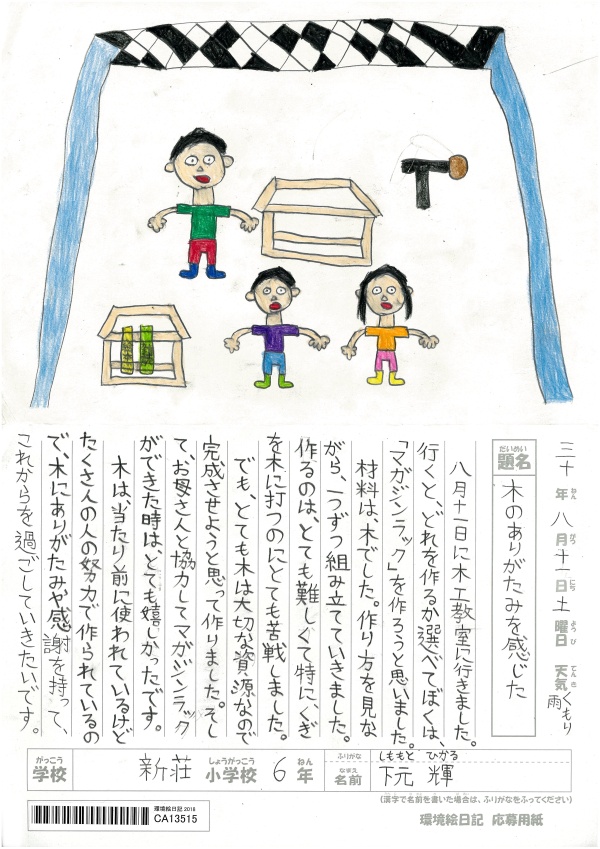 三十年八月十一日土曜日 天気くもり雨
ねん がつ にち ようび てんき
だいめい
題名 木のありがたみを感じた
八月十一日に木工教室に行きました。
行くと、どれを作るか選べてぼくは、
「マガジンラック」を作ろうと思いました。
材料は、木でした。作り方を見な
がら、一つずつ組み立てていきました。
作るのは、とても難しくて特に、くぎ
を木に打つのにとても苦戦しました。
でも、とても木は大切な資源なので
完成させようと思って作りました。そし
て、お母さんと協力してマガジンラック
ができた時は、とても嬉しかったです。
木は、当たり前に使われているけど
たくさんの人の努力で作られているの
で、木にありがたみや感謝を持って、
これからを過ごしていきたいです。
がっこう しょうがっこう ねん
学校 新荘 小学校 6年
ふりがな しももと ひかる
なまえ
名前 下元 輝
(漢字で名前を書いた場合は、ふりがなをふってください)
環境絵日記 2018
CA13515
環境絵日記 応募用紙